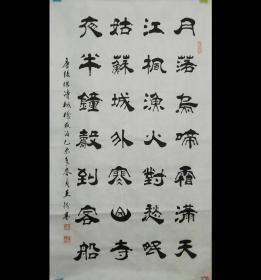 月落烏啼霜滿天
江楓漁火對愁眠
姑蘇城外寒山寺
夜半鐘聲到客船
唐張繼詩楓橋夜泊乙未